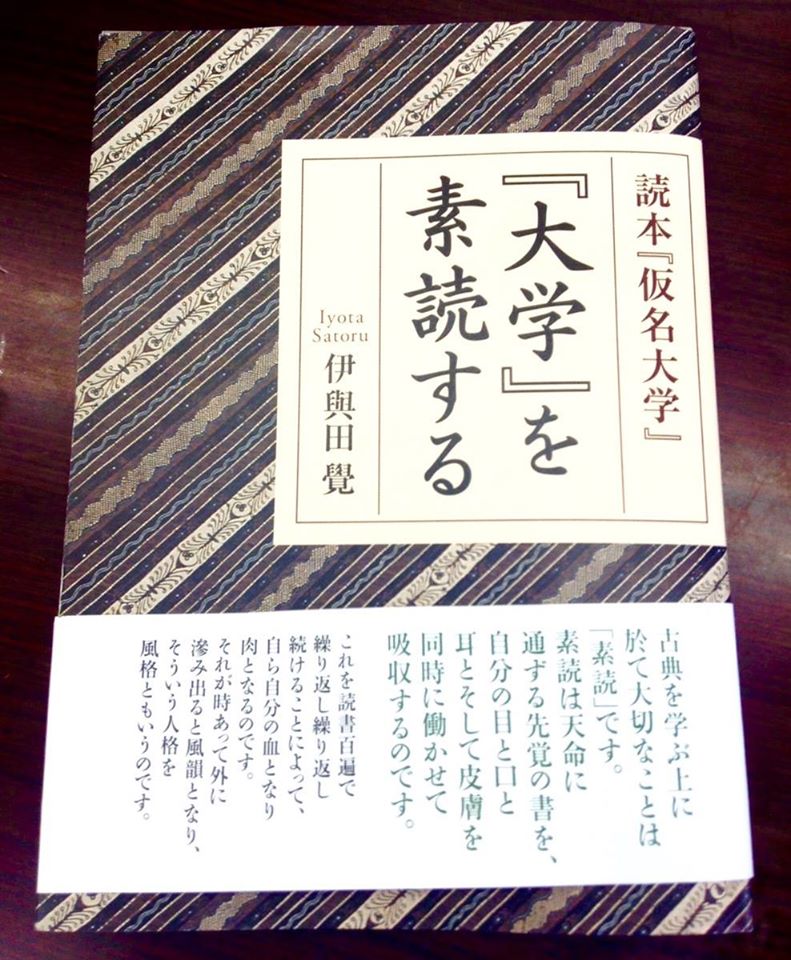 読本『仮名大学』
『大学』を
素読する
Iyota
Satoru
伊與田 覺
古典を学ぶ上に
於て大切なことは
「素読」です。
素読は天命に
通ずる先覚の書を、
自分の目と口と
耳とそして皮膚を
同時に働かせて
吸収するのです。
これを読書百遍で
繰り返し繰り返し
続けることによって、
自ら自分の血となり
肉となるのです。
それが時あって外に
滲み出ると風韻となり、
そういう人格を
風格ともいうのです。